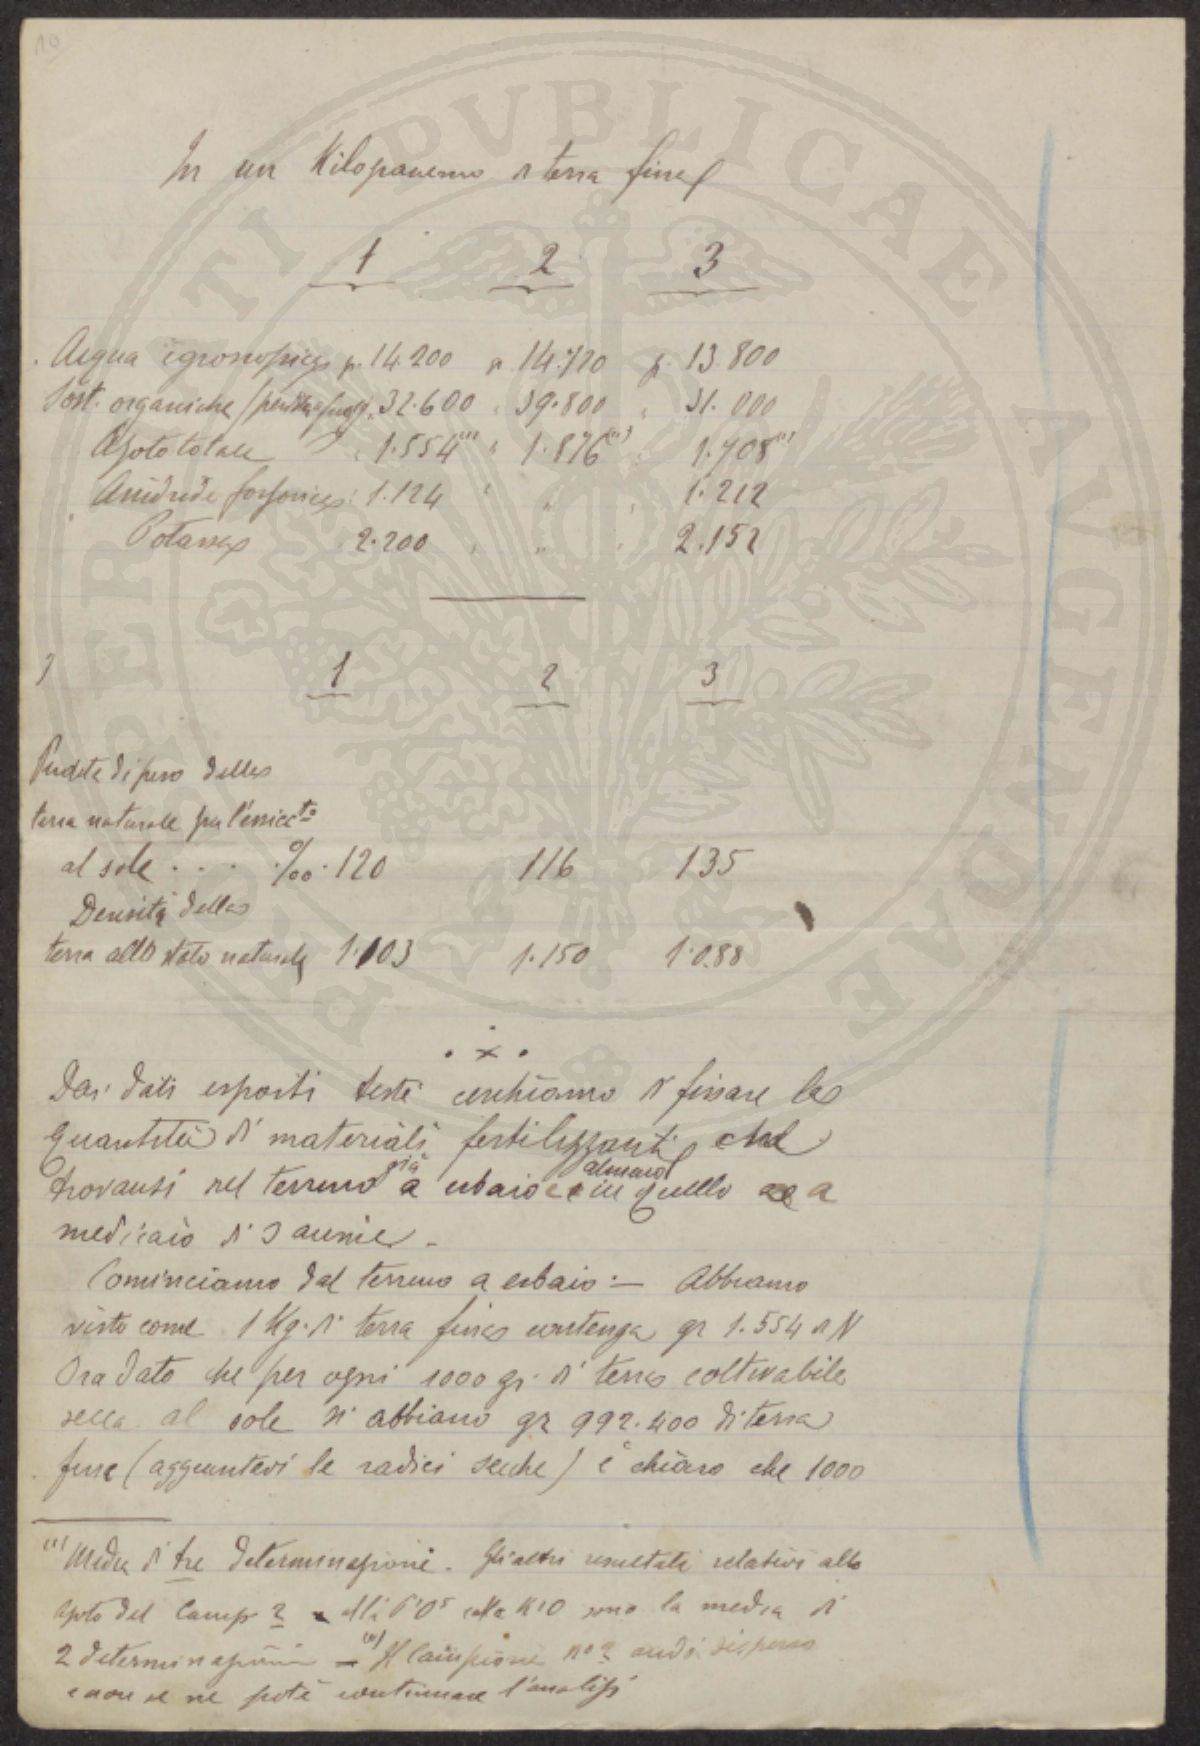 10
PROSPERITATI PVBLICAE AVGENDAE
In un Kilogrammo di terra fine
1 2 3
Acqua igroscopica gr. 14.200 gr 14.720 gr. 13.800
Sost. organiche (perdita a fuoco) " 32.600 " 39.800 " 31.000
Azoto totale " 1.554 (1) " 1.876 (1) " 1.708 (1)
Anidride fosforica 1.124 " " " 1.212
Potassa 2.200 " " " 2.152
1 2 3
Perdita di peso della
terra naturale per l'essicc.to
al sole . . . . ‰. 120 116 135
Densità della
terra allo stato naturale 1.103 1.150 1.088
. x .
Dai dati esposti testè cerchiamo di fissare la
quantità di materiali fertilizzanti che
trovansi nel terreno già a erbaio e in quello almeno a
medicaio di 3 annie.
Cominciamo dal terreno a erbaio: — Abbiamo
visto come 1 Kg. di terra fine contenga gr 1.554 di N
Ora dato che per ogni 1000 gr. di terra coltivabile
secca al sole si abbiano gr 992.400 di terra
fine (aggiuntevi le radici secche) è chiaro che 1000
(1) Media di tre determinazioni. Gli altri resultati relativi allo
azoto del Camp 2 alla P²O⁵ e alla K²O sono la media di
2 determinazioni — Il campione n° 2 andò disperso
e non se ne potè continuare l'analisi